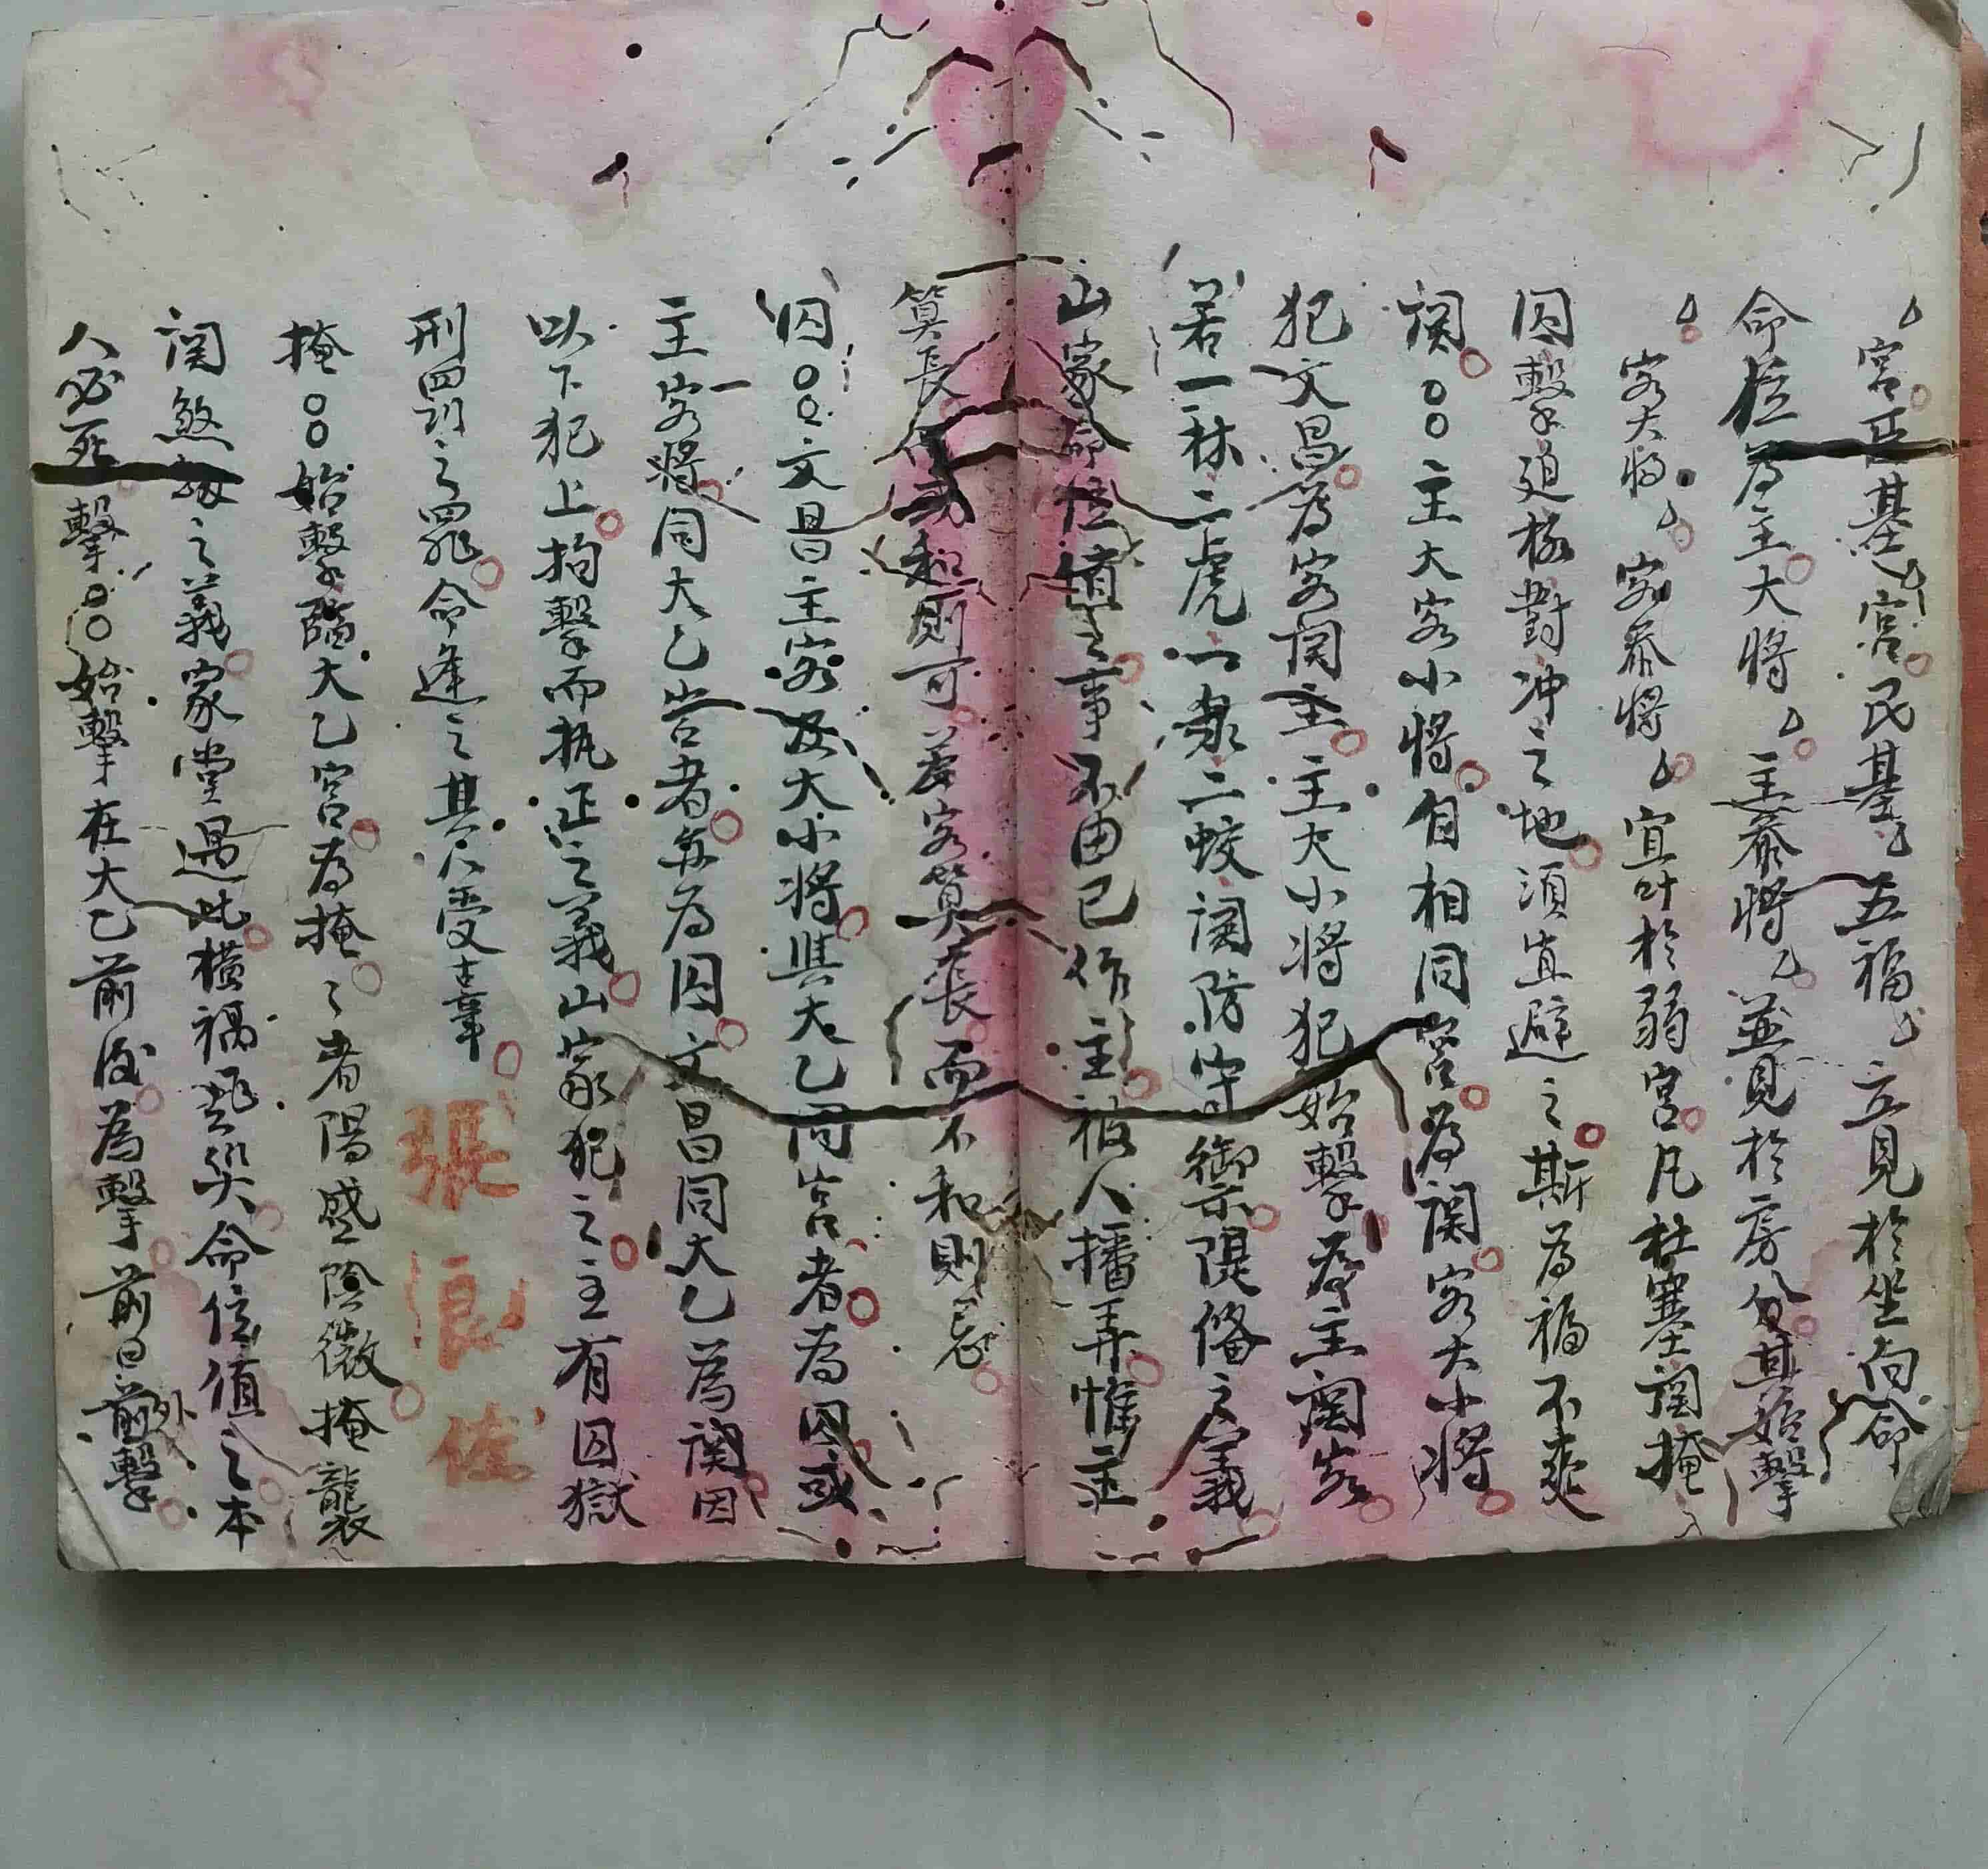 宮臣基宮民基五福立見於坐向命
命位為主大將主叅將並見於房分其始擊
客大將客叅將宜叶於弱宮凡杜塞関掩
囚擊迫格對冲之地須宜避之斯為福不爽
関〇〇主大客小將自相同宮為関客大小將
犯文昌為客関主主大小將犯始擊為主関客
若一林二虎一泉二蛟関防守御隄俻之義
山家命位值之事不由已作主被人播弄惟主
算長和則可若客算長而不和則忌
囚〇〇文昌主客及大小將與大乙同宮者為囚或
主客將同大乙宮者亦為囚文昌同大乙為関因
以下犯上拘擊而执正之義山家犯之主有囚獄
刑罰之罪命逢之其人受辜
張良佐
掩〇〇始擊臨大乙宮為掩掩者陽盛陰微掩襲
関煞之義家堂遇此橫禍飛災命位值之本
人必死擊〇〇始擊在大乙前后為擊前曰外擊